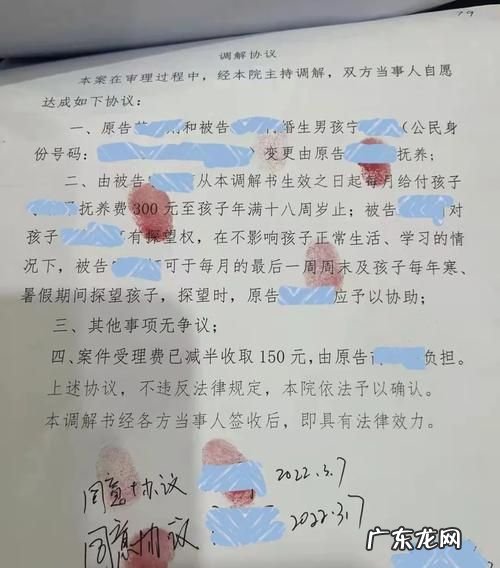 19
调解协议
本案在审理过程中，经本院主持调解，双方当事人自愿
达成如下协议：
一、原告 和被告 婚生男孩宁 （公民身
份号码： ）变更由原告 抚养；
二、由被告 从本调解书生效之日起每月给付孩子
抚养费300元至孩子年满十八周岁止；被告 对
孩子 有探望权，在不影响孩子正常生活、学习的情
况下，被告 可于每月的最后一周周末及孩子每年寒、
暑假期间探望孩子，探望时，原告 应予以协助；
三、其他事项无争议；
四、案件受理费已减半收取150元，由原告 负担。
上述协议，不违反法律规定，本院依法予以确认。
本调解书经各方当事人签收后，即具有法律效力。
同意协议 2022.3.7
同意协议 2022.3.7
广东龙网